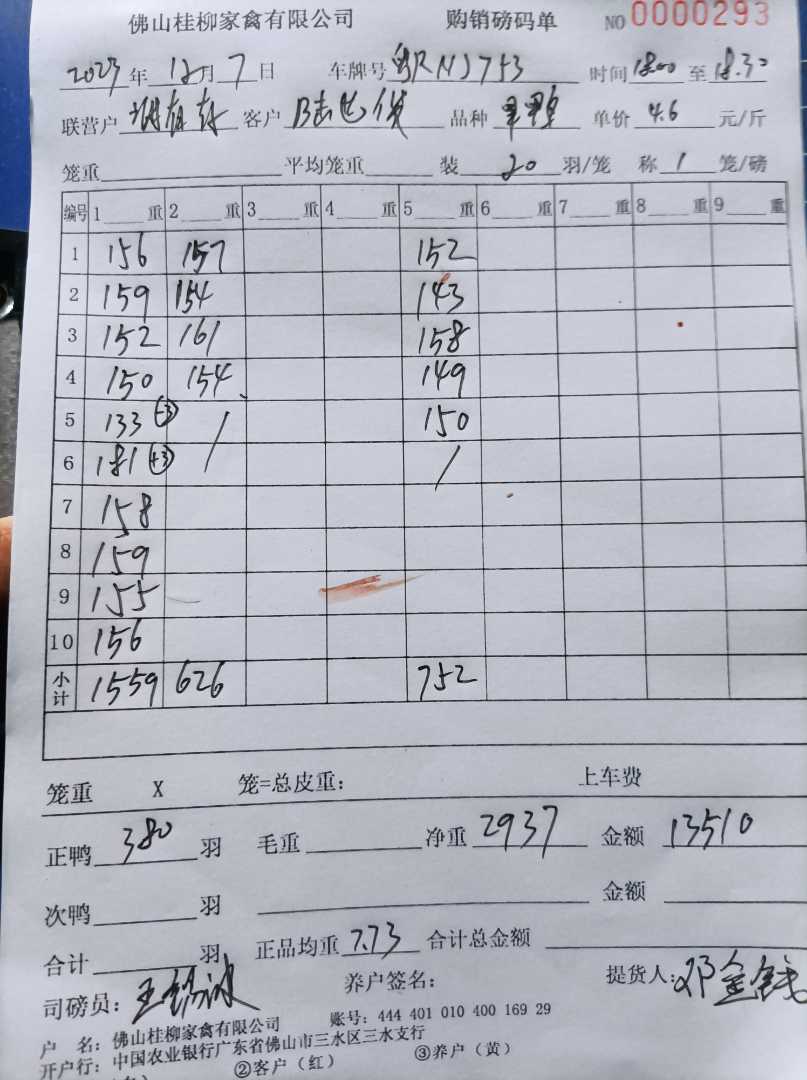 佛山桂柳家禽有限公司 购销磅码单 NO 0000293
2023年 12月 7日 车牌号 粤RNJ753 时间 18:00 至 18:30
联营户 客户 品种 单价 4.6 元/斤
笼重 平均笼重 装 20 羽/笼 称 1 笼/磅
编号 1 重 2 重 3 重 4 重 5 重 6 重 7 重 8 重 9 重
1 156 157 152
2 159 154 143
3 152 161 158
4 150 154 149
5 133 (-3) / 150
6 181 (+3) /
7 158
8 159
9 155
10 156
小计 1559 626 752
笼重 X 笼=总皮重: 上车费
正鸭 380 羽 毛重 净重 2937 金额 13510
次鸭 羽 金额
合计 羽 正品均重 7.73 合计总金额
司磅员: 王 养户签名: 提货人: 邓金
户 名: 佛山桂柳家禽有限公司 账号: 444 401 010 400 169 29
开户行: 中国农业银行广东省佛山市三水区三水支行
②客户(红) ③养户(黄)